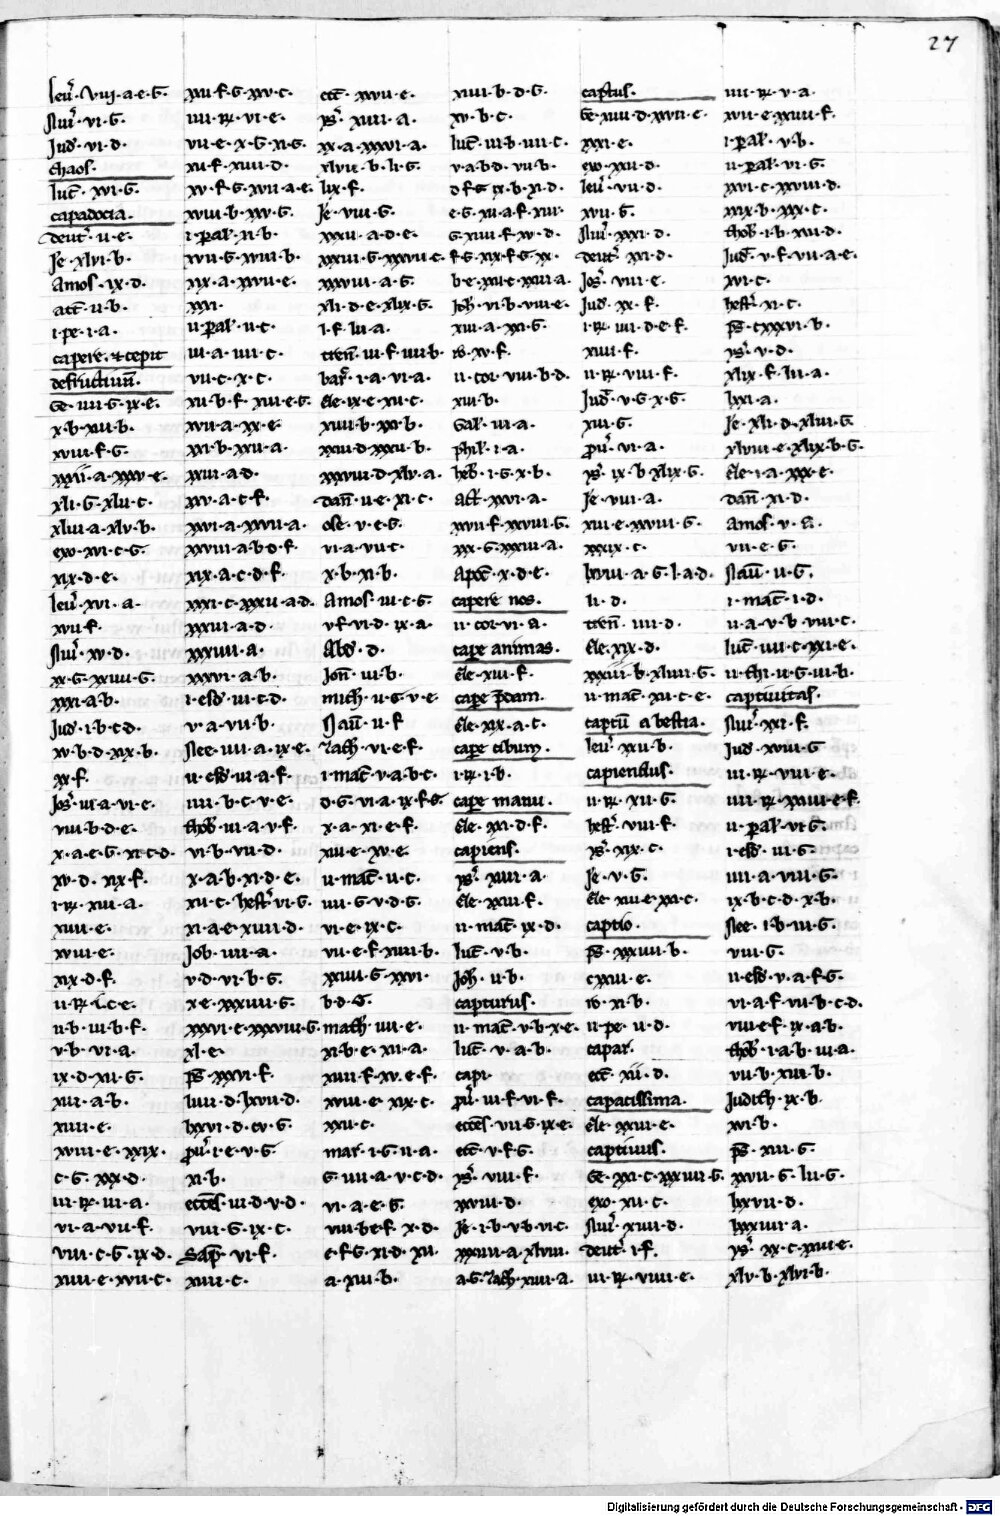 27
leuͬ · viij · a · e · G ·
Nuͬ · vi · G ·
Jud · vi · d ·
chaos ·
luc̄ · xvi · G ·
capadocia ·
deutͬ · ii · e ·
Je · xlvi · b ·
Amos · ix · d ·
act̄ · ii · b ·
i · pe · i · a ·
capere · & cepit
defructiuū ·
Ge · iiii · G · ix · e ·
x · b · xiii · b ·
xviii · f · G
xxxii · a · xxxv · e ·
xli · G · xlii · c ·
xliii · a · xlv · b ·
exo · xvi · c · G ·
xix · d · e ·
leuͬ · xvi · a ·
xvii · f ·
Nuͬ · xv · d ·
xx · G · xxiiii · G ·
xxxi · a · b ·
Jud · i · b · c · d ·
xv · b · d · xix · b ·
xx · f ·
Josͬ · iii · a · vi · e ·
viii · b · d · e ·
x · a · e · G · xi · c · d ·
xv · d · xix · f ·
i · R · xiii · a ·
xiiii · e ·
xviii · e ·
xix · d · f ·
ii · R · i · c · e ·
ii · b · iii · b · f ·
v · b · vi · a ·
ix · d · xii · G ·
xiii · a · b ·
xiiii · e ·
xviii · e · xxix ·
c · G · xxx · d ·
iii · R · iii · a ·
vi · a · vii · f ·
viii · c · G · ix · d ·
xiiii · e · xvii · c ·
xxii · f · G · xxv · c ·
iiii · R · vi · e ·
vii · e · x · G · xi · G ·
xii · f · xiii · d ·
xv · f · G · xvii · a · e ·
xviii · b · xxv · G ·
i · Pal · ii · b ·
xvii · G · xviii · b ·
xix · a · xxvii · e ·
xxxi ·
ii · Pal · ii · c ·
iii · a · iiii · c ·
vii · c · x · c ·
xii · b · f · xiii · e · G ·
xvii · a · xx · e ·
xxi · b · xxii · a ·
xxiii · a · d ·
xxv · a · c · f ·
xxvi · a · xxvii · a ·
xxviii · a · b · d · f ·
xix · a · c · d · f ·
xxxi · c · xxxii · a · d ·
xxxiii · a · d ·
xxxiiii · a ·
xxxvi · a · b ·
i · esd · iii · c · d ·
v · a · vii · b ·
Nee · iiii · a · ix · e ·
ii · esd · iii · a · f ·
iiii · b · c · v · e ·
thob · iii · a · v · f ·
vi · b · vii · d ·
x · a · b · xi · d · e ·
xii · c · hestͬ · vi · G ·
xi · a · e · xiii · d ·
Job · iiii · a ·
v · d · vi · b · G ·
x · e · xxxiiii · G ·
xxxvi · e · xxxviii · G ·
xl · e ·
ps̄ · xxxvi · f ·
liiii · d · lxvii · d ·
lxxvi · d · cv · G ·
puͬ · i · e · v · G ·
xi · b ·
ecces̄ · iii · d · v · d ·
viii · G · ix · c ·
Sap̄ · vi · f ·
xiiii · c ·
ecc̄ · xxvii · e ·
ysͬ · xiii · a ·
xx · a · xxxvi · a ·
xlvii · b · li · G ·
lix · f ·
Je · viii · G ·
xxxii · a · d · e ·
xxxiii · G · xxxvii · c ·
xxxviii · a · G ·
xli · d · e · xlix · G ·
l · f · lii · a ·
tren̄ · iii · f · iiii · b ·
barͬ · i · a · vi · a ·
Ele · ix · e · xii · c ·
xiiii · b · xx · b ·
xxiii · d · xxxii · b ·
xxxviii · d · xlv · a ·
dan̄ · ii · e · xi · c ·
ose · v · e · G ·
vi · a · vii · c ·
x · b · xi · b ·
Amos · iii · c · G ·
v · f · vi · d · ix · a ·
Abd · d ·
Jon̄ · iii · b ·
mich · ii · G · v · e
Naū · ii · f
Zach · vi · e · f ·
i · mac̄ · v · a · b · c ·
d · G · vi · a · ix · f · G ·
x · a · xi · e · f ·
xii · e · xv · e ·
ii · mac̄ · ii · c ·
iiii · G · v · d · G ·
vi · e · ix · c ·
vii · e · f · xiiii · b ·
xxiiii · G · xxvi ·
b · d · G ·
math · iiii · e ·
xi · b · e · xii · a ·
xiiii · f · xv · e · f ·
xviii · e · xix · c ·
xxii · c ·
mar · i · G · ii · a ·
G · iii · a · v · c · d ·
vi · a · e · G ·
viii · b e f · x · d ·
e · f · G · xi · d · xii ·
a · xiii · b ·
xiiii · b · d · G
xv · b · c ·
luc̄ · iii · b · iiii · c ·
v · a · b d · vii · b ·
d f G ix · b · xi · d ·
e · G · xii · a · f · xiii ·
G · xiiii · f · xv · d ·
f · G · xix · f · G · xx ·
b · e · xxi · c · xxiii · a ·
Joh · vi · b · viii · e ·
xiii · a · xxi · G ·
ro · xv · f ·
ii · cor · viii · b · d ·
xii · b ·
Gal · iii · a ·
phil · i · a ·
heb · i · G · x · b ·
act̄ · xxvi · a ·
xxvii · f · xxviii · G ·
xxx · G · xxxiii · a ·
Apoc̄ · x · d · e ·
capere nos ·
ii · cor · vi · a ·
cape animas ·
Ele · xiii · f ·
cape p̄dam ·
Ele · xix · a · c ·
cape cibum ·
i · R · i · b ·
cape manu ·
Ele · xxi · d · f ·
capiens ·
ysͬ · xiii · a ·
Ele · xxii · f ·
ii · mac̄ · ix · d ·
luc̄ · v · b ·
Joh · ii · b ·
capturus ·
ii · mac̄ · v · b · x · e ·
luc̄ · v · a · b ·
capi
puͬ · iii · f · vi · f ·
ecces̄ · vii · G · ix · e ·
ecc̄ · v · f · G ·
ysͬ · viii · f ·
xxviii · d ·
Je · i · b · v · b · vi · c ·
xxxiii · a · xlviii ·
a · G · Zach · xiiii · a ·
captus ·
Ge · xiiii · d · xxvii · e ·
xxxi · e ·
exo · xxii · d ·
leuͬ · vii · d ·
xvii · G ·
Nuͬ · xxxi · d ·
deutͬ · xxi · d ·
Josͬ · viii · e ·
Jud · xx · f ·
i · R · iiii · d · e · f ·
xiiii · f ·
ii · R · viii · f ·
Jud · v · G · x · G ·
xiii · G ·
puͬ · vi · a ·
ysͬ · ix · b · xlix · G ·
Je · viii · a ·
xiii · e · xxviii · G ·
xxxix · c ·
lxviii · a · G · l · a · d ·
li · d ·
tren̄ · iiii · d ·
Ele · xix · d ·
xxxiii · b · xliiii · G ·
ii · mac̄ · xii · c · e ·
captū a bestia ·
leuͬ · xxii · b ·
capiendus ·
ii · R · xii · G ·
hestͬ · viii · f ·
ysͬ · xix · c ·
Je · v · G ·
Ele · xii · e · xxi · c ·
captio ·
ps̄ · xxxiiii · b ·
cxxiii · e ·
ro · xi · b ·
ii · pe · ii · d ·
capax ·
ecc̄ · xii · d ·
capacissima ·
Ele · xxiii · e ·
captiuus ·
Ge · xxi · c · xxxiiii · G ·
exo · xii · c ·
Nuͬ · xiiii · d ·
deutͬ · i · f ·
iii · R · viiii · e ·
iiii · R · v · a ·
xvii · e · xxiiii · f ·
i · Pal · v · b ·
ii · Pal · vi · G ·
xxi · c · xxviii · d ·
xxix · b · xxx · c ·
thob · i · b · xiii · d ·
Jud · v · f · vii · a · e ·
xvi · c ·
hestͬ · xi · c ·
ps̄ · cxxxvi · b ·
ysͬ · v · d ·
xlix · f · lii · a ·
lxxi · a ·
Je · xli · d · xliii · G
xlviii · e · xlix · b · G ·
Ele · i · a · xxx · e ·
dan̄ · xi · d ·
Amos · v · G ·
vii · e · G ·
Naū · ii · G ·
i · mac̄ · i · d ·
ii · a · v · b · viii · c ·
luc̄ · iiii · c · xxi · e ·
ii · thi · ii · G · iii · b ·
captiuitas ·
Nuͬ · xxi · f ·
Jud · xviii · G
iii · R · viii · e ·
iiii · R · xxiiii · e · f ·
ii · Pal · vi · G ·
i · esd · iii · G ·
iiii · a · viii · G ·
ix · b · c · d · x · b ·
Nee · i · b · iii · G ·
viii · G ·
ii · esd · v · a · f · G ·
vi · a · f · vii · b · c · d ·
viii · e · f · ix · a · b ·
thob · i · a · b · iii · a ·
vii · b · xiii · b ·
Judith · ix · b
xvi · b ·
ps̄ · xiii · G ·
xxvii · G · lii · G ·
lxxvii · d ·
lxxxiiii · a ·
ysͬ · xx · c · xxiii · e ·
xlv · b · xlvi · b ·
Digitalisierung gefördert durch die Deutsche Forschungsgemeinschaft · DFG